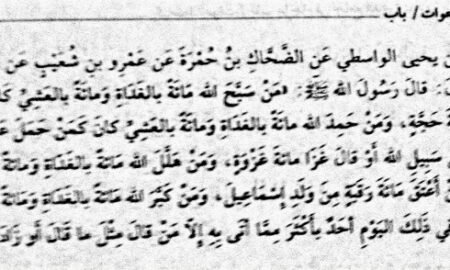 عوات / باب
ن يحيى الواسطي عَنِ الضَّحَّاكِ بنُ حُمْرَةَ عَن عَمْرِو بنِ شُعَيْبٍ عَن
: قالَ رَسُولُ الله ﷺ: «مَنْ سَبَّحَ الله مَائَةً بالغَدَاةِ وَمائَةً بالعَشِيِّ كَا
ةَ حَجَّةٍ، وَمَنْ حَمِدَ الله مائةً بالغَدَاةِ وَمَائَةً بالعَشِيِّ كانَ كَمَنْ حَمَلَ عَـ
سَبِيلِ الله أَوْ قالَ غَزَا مائَةَ غَزْوَةٍ، وَمَنْ هَلَّلَ الله مائَةً بالغَدَاةِ ومائةً
نْ أَعْتَقَ مَائَةَ رَقَبَةٍ مِنْ وَلَدِ إِسْمَاعِيلَ، وَمَنْ كَبَّرَ الله مَائَةً بالغَدَاةِ وَمَائَةً
في ذَلِكَ اليَوْمِ أحَدٌ بأَكْثَرَ مِمَّا أتَى بِهِ إلاَّ مَن قالَ مِثْلَ ما قَالَ أو زَادَ